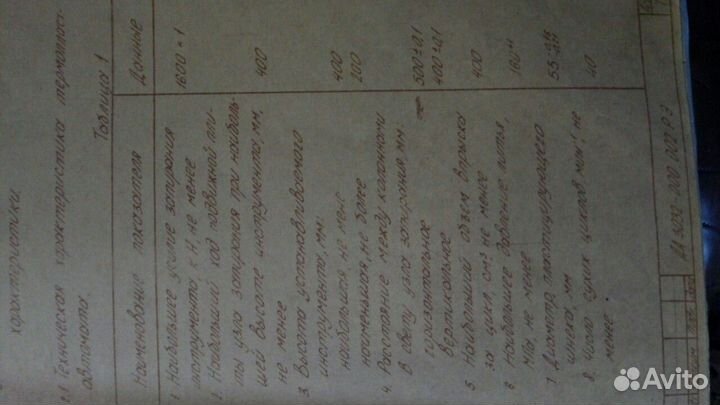 характеристики.
2.1 Техническая характеристика термопласт-
автомата.
Таблица 1
Наименование показателя Данные
1 Наибольшее усилие запирания
инструмента, кН не менее 1600
2. Наибольший ход подвижной пли-
ты узла запирания при наиболь-
шей высоте инструмента, мм,
не менее 400
3. Высота устанавливаемого
инструмента, мм:
наибольшая не мене 400
наименьшая, не более 200
4. Расстояние между колоннами
в свету узла запирания, мм:
горизонтальное 500
вертикальное 400
5. Наибольший объем впрыска
за цикл, см3 не менее 400
6. Наибольшее давление литья,
МПа, не менее
7. Диаметр пластицирующего
шнека, мм 55
8. Число сухих циклов мин⁻¹, не
менее 40
Avito